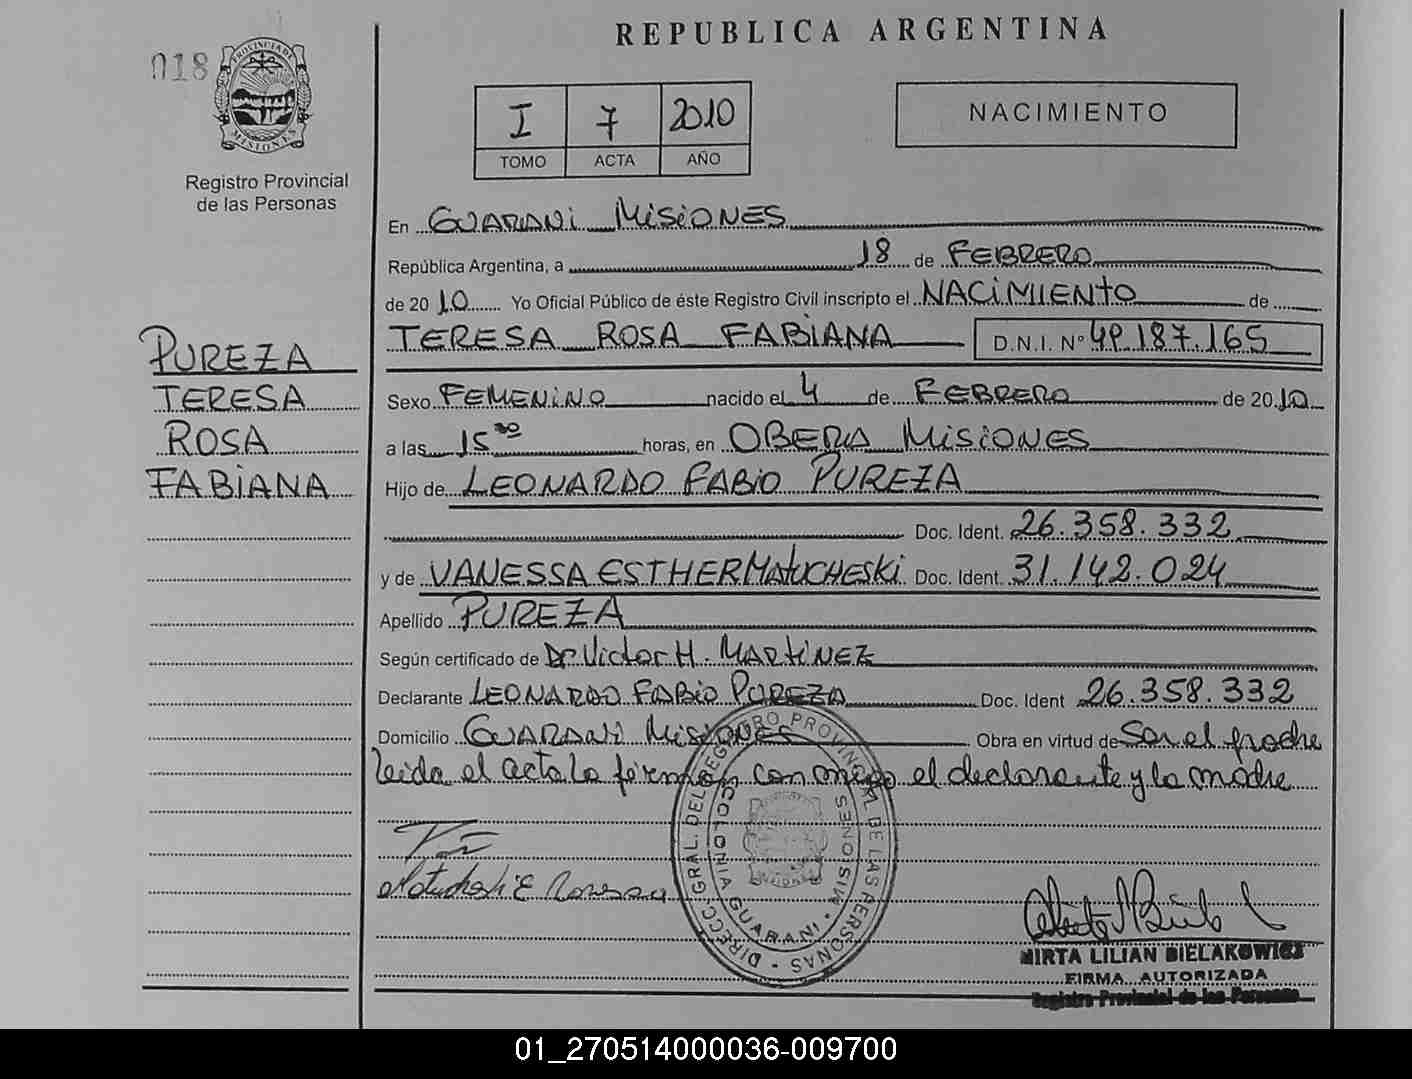 REPUBLICA ARGENTINA
018
PROVINCIA DE
MISIONES
Registro Provincial
de las Personas
I 7 2010
TOMO ACTA AÑO
NACIMIENTO
En GUARANI MISIONES
República Argentina, a 18 de FEBRERO
de 2010 Yo Oficial Público de éste Registro Civil inscripto el NACIMIENTO de
TERESA ROSA FABIANA D.N.I. Nº 49.187.165
PUREZA
TERESA
ROSA
FABIANA
Sexo FEMENINO nacido el 4 de FEBRERO de 2010
a las 15 30 horas, en OBERA MISIONES
Hijo de LEONARDO FABIO PUREZA
Doc. Ident. 26.358.332
y de VANESSA ESTHER MATUCHESKI Doc. Ident. 31.142.024
Apellido PUREZA
Según certificado de Dr Victor H. MARTINEZ
Declarante LEONARDO FABIO PUREZA Doc. Ident 26.358.332
Domicilio GUARANI MISIONES Obra en virtud de Ser el padre
leida el acta la firman con migo el declarante y la madre
DIRECC. GRAL. DEL REGISTRO PROVINCIAL DE LAS PERSONAS
COLONIA GUARANI - MISIONES
MIRTA LILIAN BIELAKOWICZ
FIRMA AUTORIZADA
Registro Provincial de las Personas
01_270514000036-009700